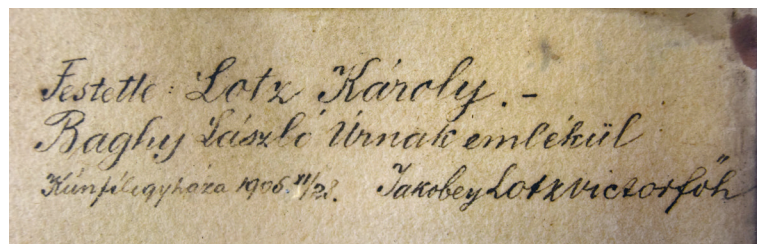 Festette: Lotz Károly. –
Baghy László Úrnak emlékül
Kúnfélegyháza 1906. Jakobey Lotzvictorfőh